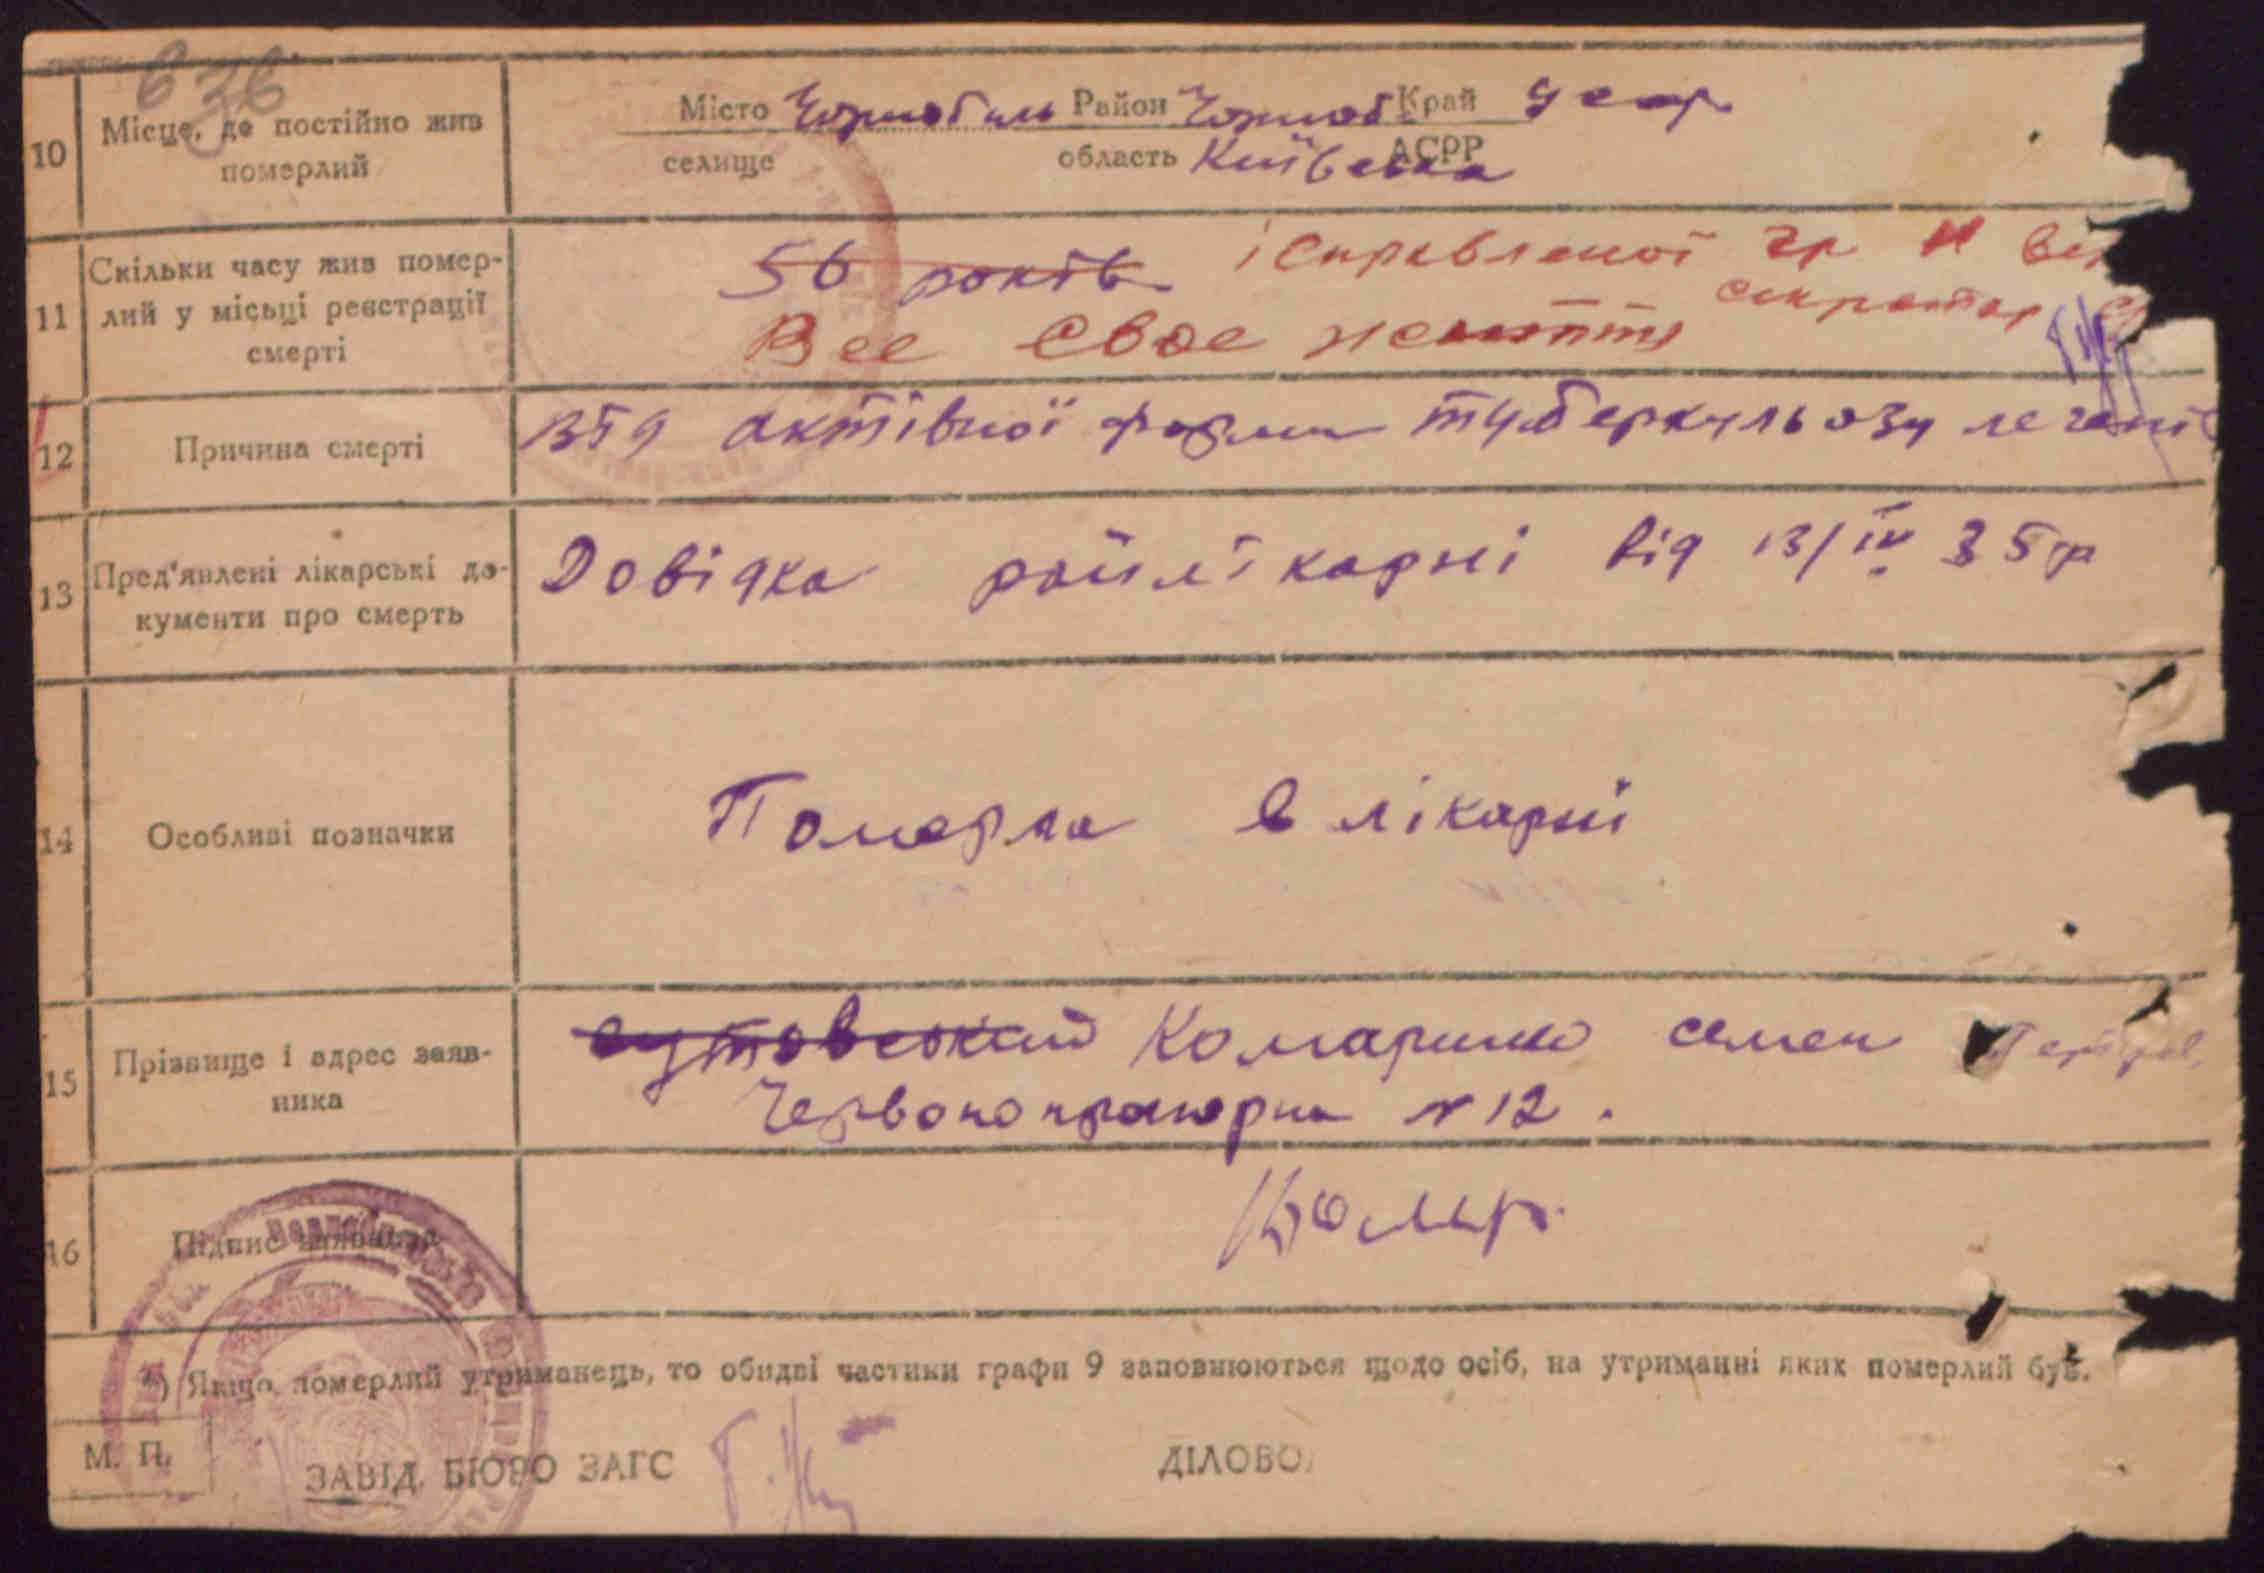 636
10 Місце, де постійно жив померлий
Місто Чорнобиль Район Чорноб. Край УСРР
селище область Київська АСРР
11 Скільки часу жив помер-
лий у місьці реєстрації
смерті
56 років ісправленої гр 11
Все своє життя секретар
12 Причина смерті
від актівної форми туберкульозу легенів
13 Пред'явлені лікарські до-
кументи про смерть
Довідка райлікарні від 13/IV 35 р
14 Особливі позначки
Померла в лікарні
15 Прізвище і адрес заяв-
ника
Комаринко семен
Червонопрапорна № 12.
16 Підпис заявника
Комар.
*) Якщо померлий утриманець, то обидві частини графи 9 заповнюються щодо осіб, на утриманні яких померлий був.
М. П.
ЗАВІД. БЮРО ЗАГС ДІЛОВО